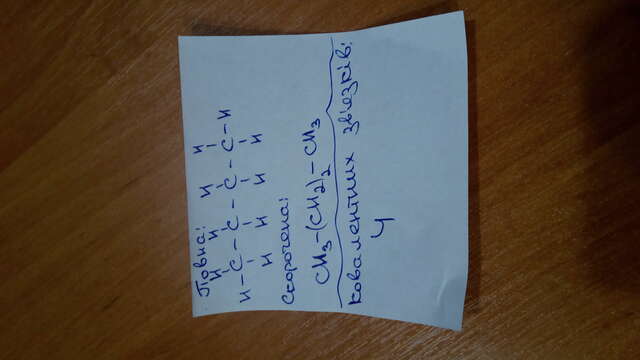 Повна:
H H H H
H-C-C-C-C-H
H H H H
Скорочена:
CH₃-(CH₂)₂-CH₃
Ковалентних зв'язків:
4